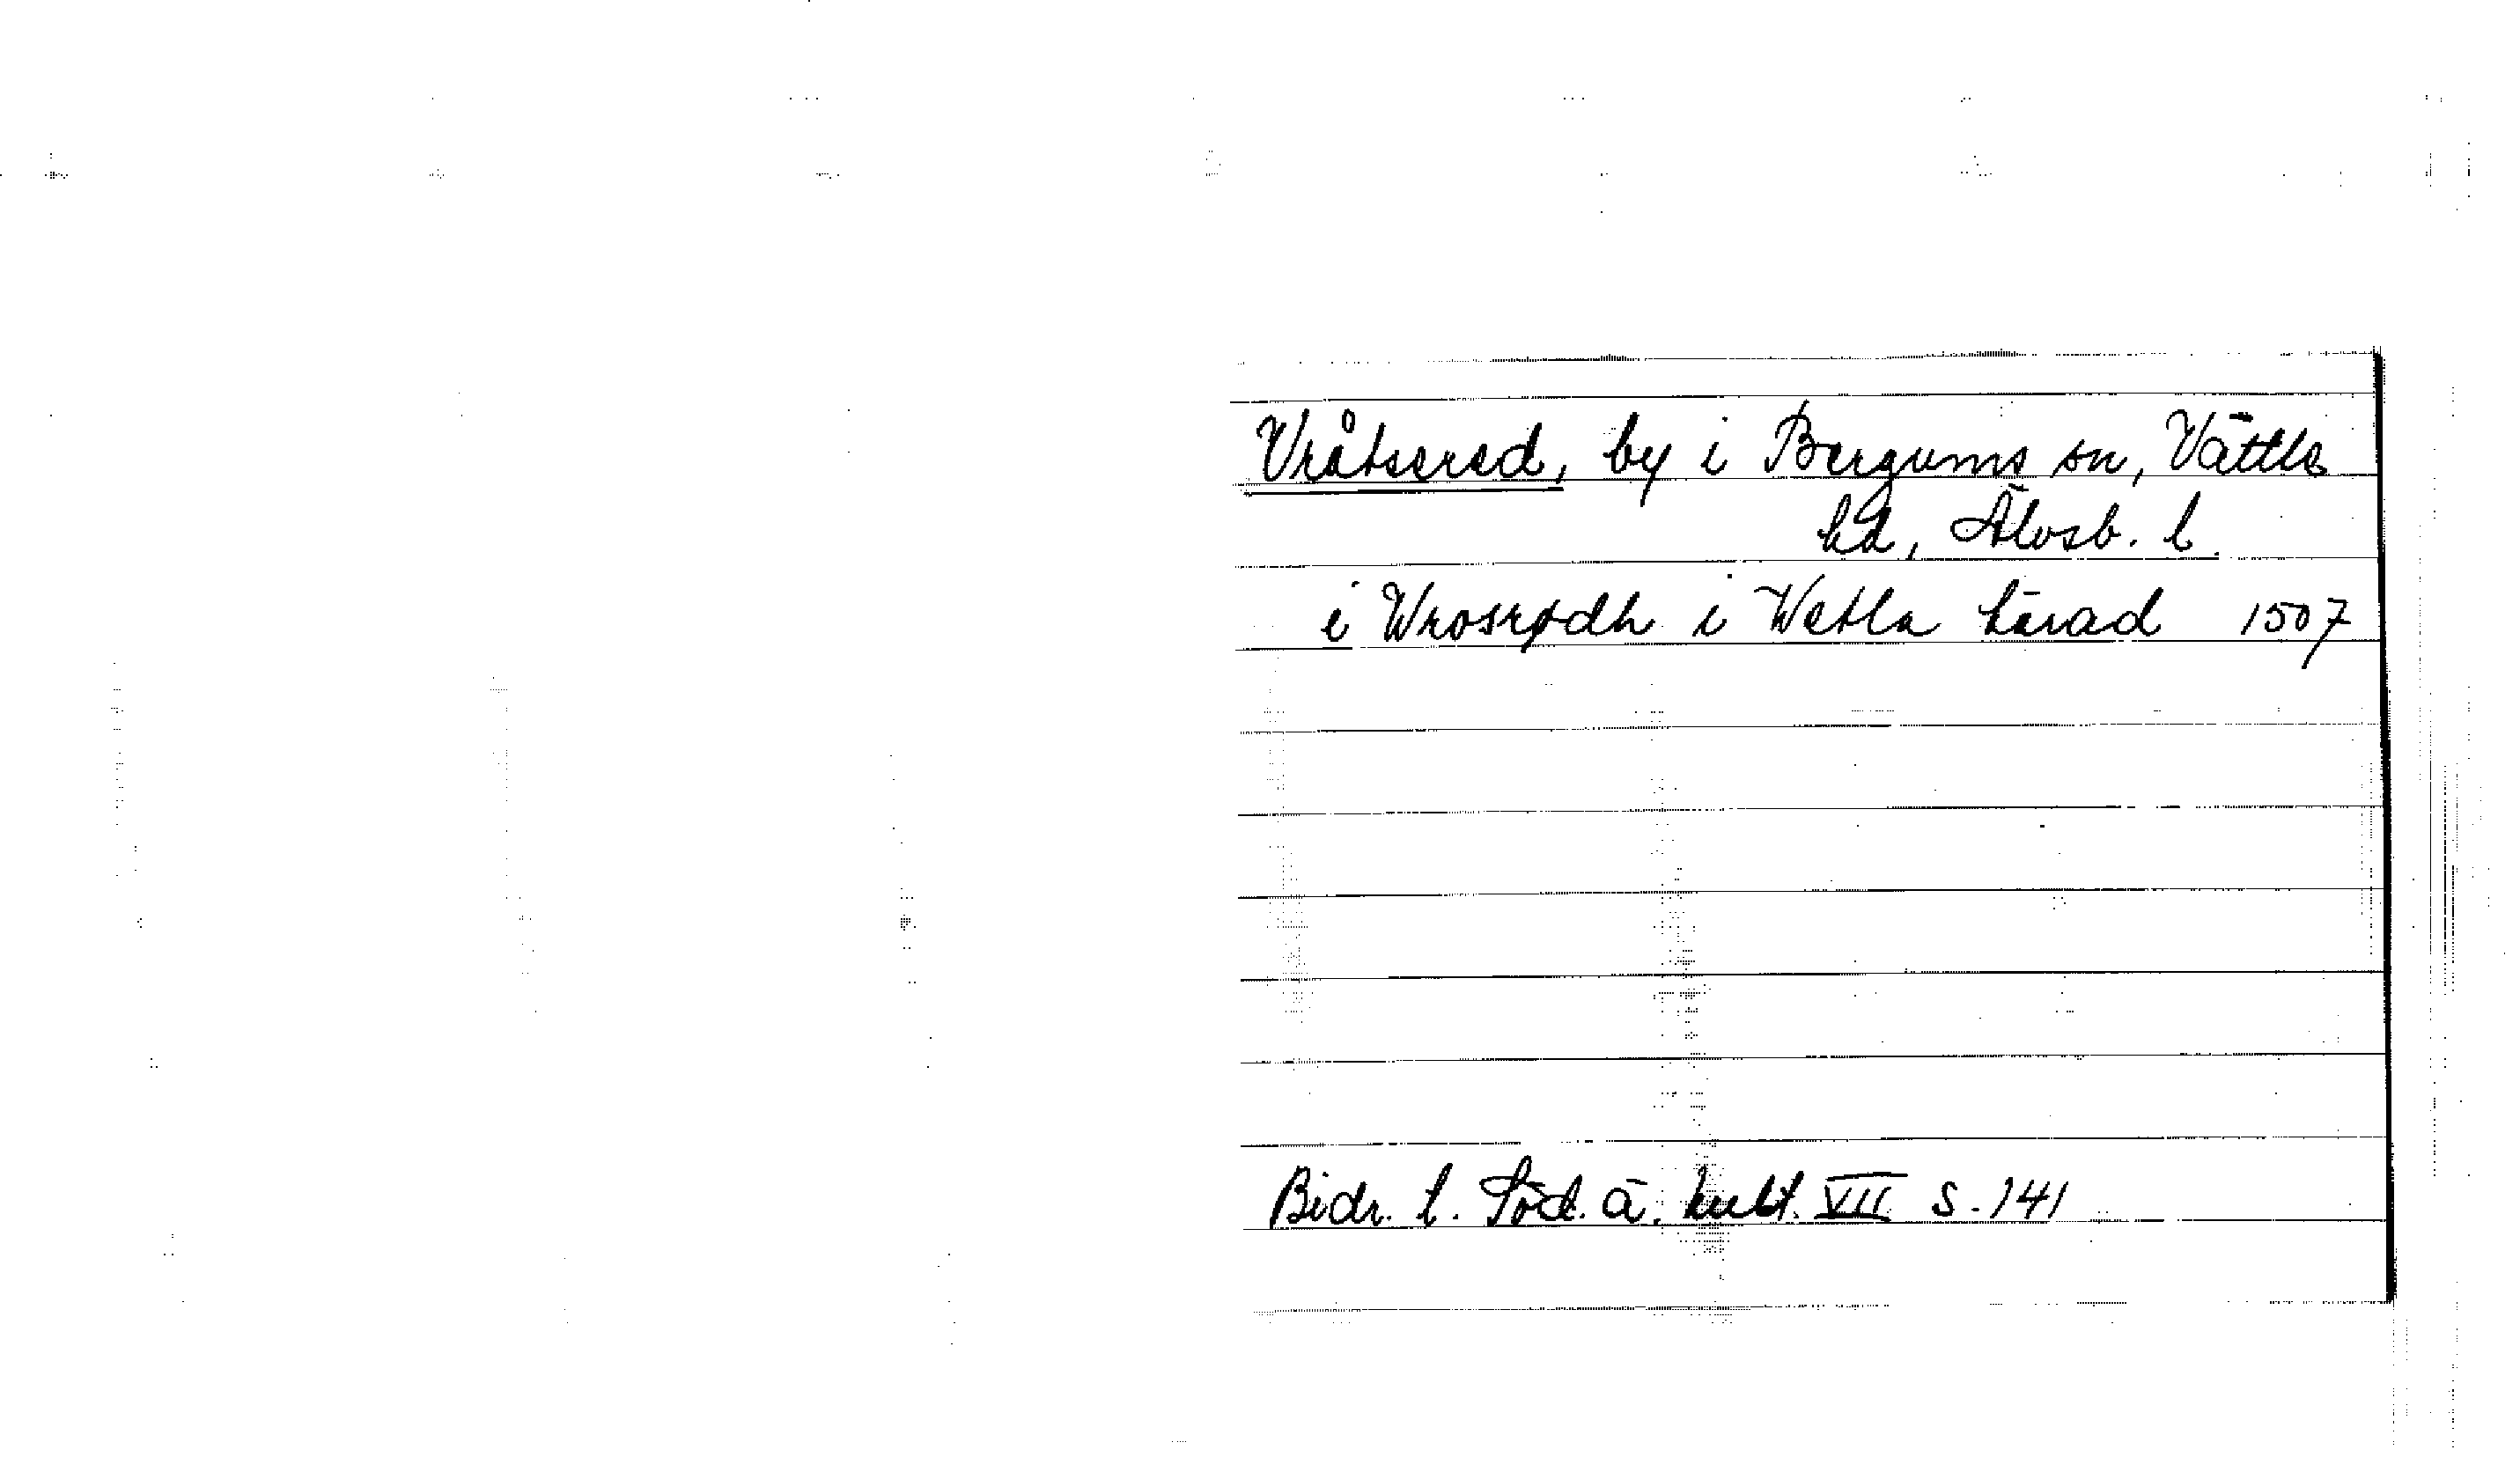 Vråtsered, by i Bergums sn, Vättle
hd, Älvsb. l.
i Wrosrødh i Wetla härad 1507
Bidr. t. Söd. ä. kult. VII s. 141